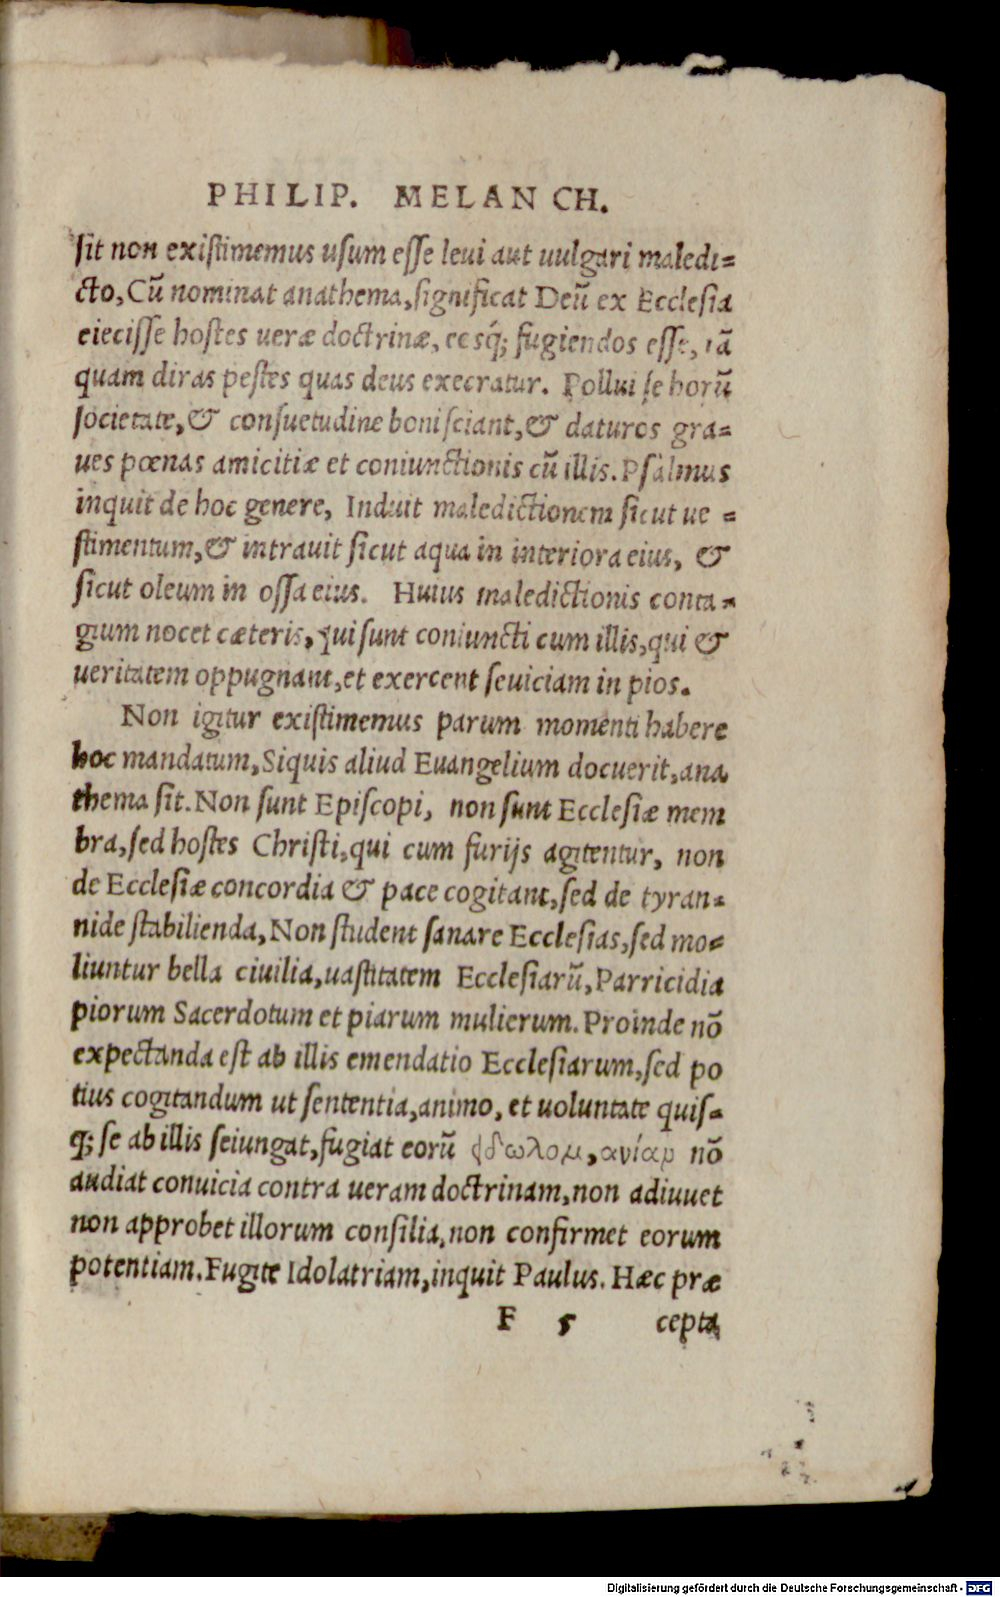 PHILIP. MELAN CH.
ſit non exiſtimemus uſum eſſe leui aut uulgari maledi=
cto, Cū nominat anathema, ſignificat Deū ex Eccleſia
eieciſſe hoſtes ueræ doctrinæ, eosq́; fugiendos eſſe, tā
quam diras peſtes quas deus execratur. Pollui ſe horū
ſocietate, & conſuetudine boni ſciant, & daturos gra=
ues pœnas amicitiæ et coniunctionis cū illis. Pſalmus
inquit de hoc genere, Induit maledictionem ſicut ue =
ſtimentum, & intrauit ſicut aqua in interiora eius, &
ſicut oleum in oſſa eius. Huius maledictionis conta=
gium nocet cæteris, qui ſunt coniuncti cum illis, qui &
ueritatem oppugnant, et exercent ſeuiciam in pios.
Non igitur exiſtimemus parum momenti habere
hoc mandatum, Siquis aliud Euangelium docuerit, ana
thema ſit. Non ſunt Epiſcopi, non ſunt Eccleſiæ mem
bra, ſed hoſtes Chriſti, qui cum furijs agitentur, non
de Eccleſiæ concordia & pace cogitant, ſed de tyran=
nide ſtabilienda, Non ſtudent ſanare Eccleſias, ſed mo=
liuntur bella ciuilia, uaſtitatem Eccleſiarū, Parricidia
piorum Sacerdotum et piarum mulierum. Proinde nō
expectanda eſt ab illis emendatio Eccleſiarum, ſed po
tius cogitandum ut ſententia, animo, et uoluntate quiſ=
q; ſe ab illis ſeiungat, fugiat eorū nō
audiat conuicia contra ueram doctrinam, non adiuuet
non approbet illorum conſilia, non confirmet eorum
potentiam. Fugite Idolatriam, inquit Paulus. Hæc præ
F 5 cepta
Digitalisierung gefördert durch die Deutsche Forschungsgemeinschaft - DFG